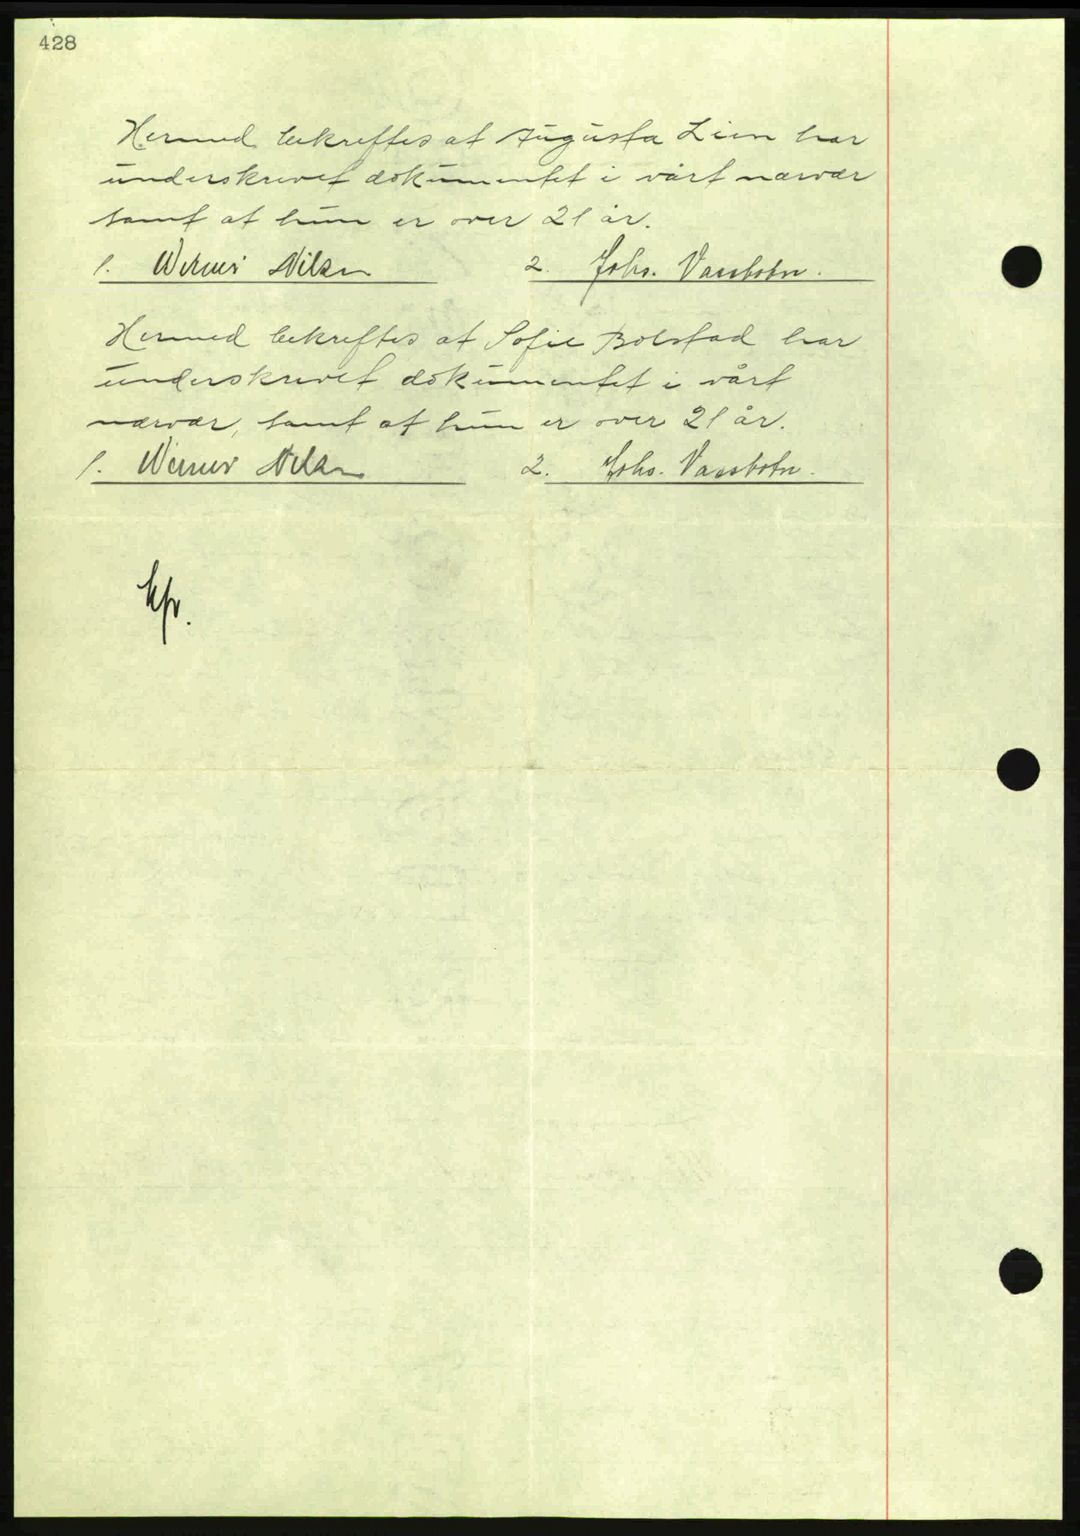 428
Hermed bekreftes at Augusta Lien har
underskrevet dokumentet i vårt nærvær
samt at hun er over 21 år.
1. Werner Nilsen 2. Johs. Vassbotn.
Hermed bekreftes at Sofie Bolstad har
underskrevet dokumentet i vårt
nærvær, samt at hun er over 21 år.
1. Werner Nilsen 2. Johs. Vassbotn.